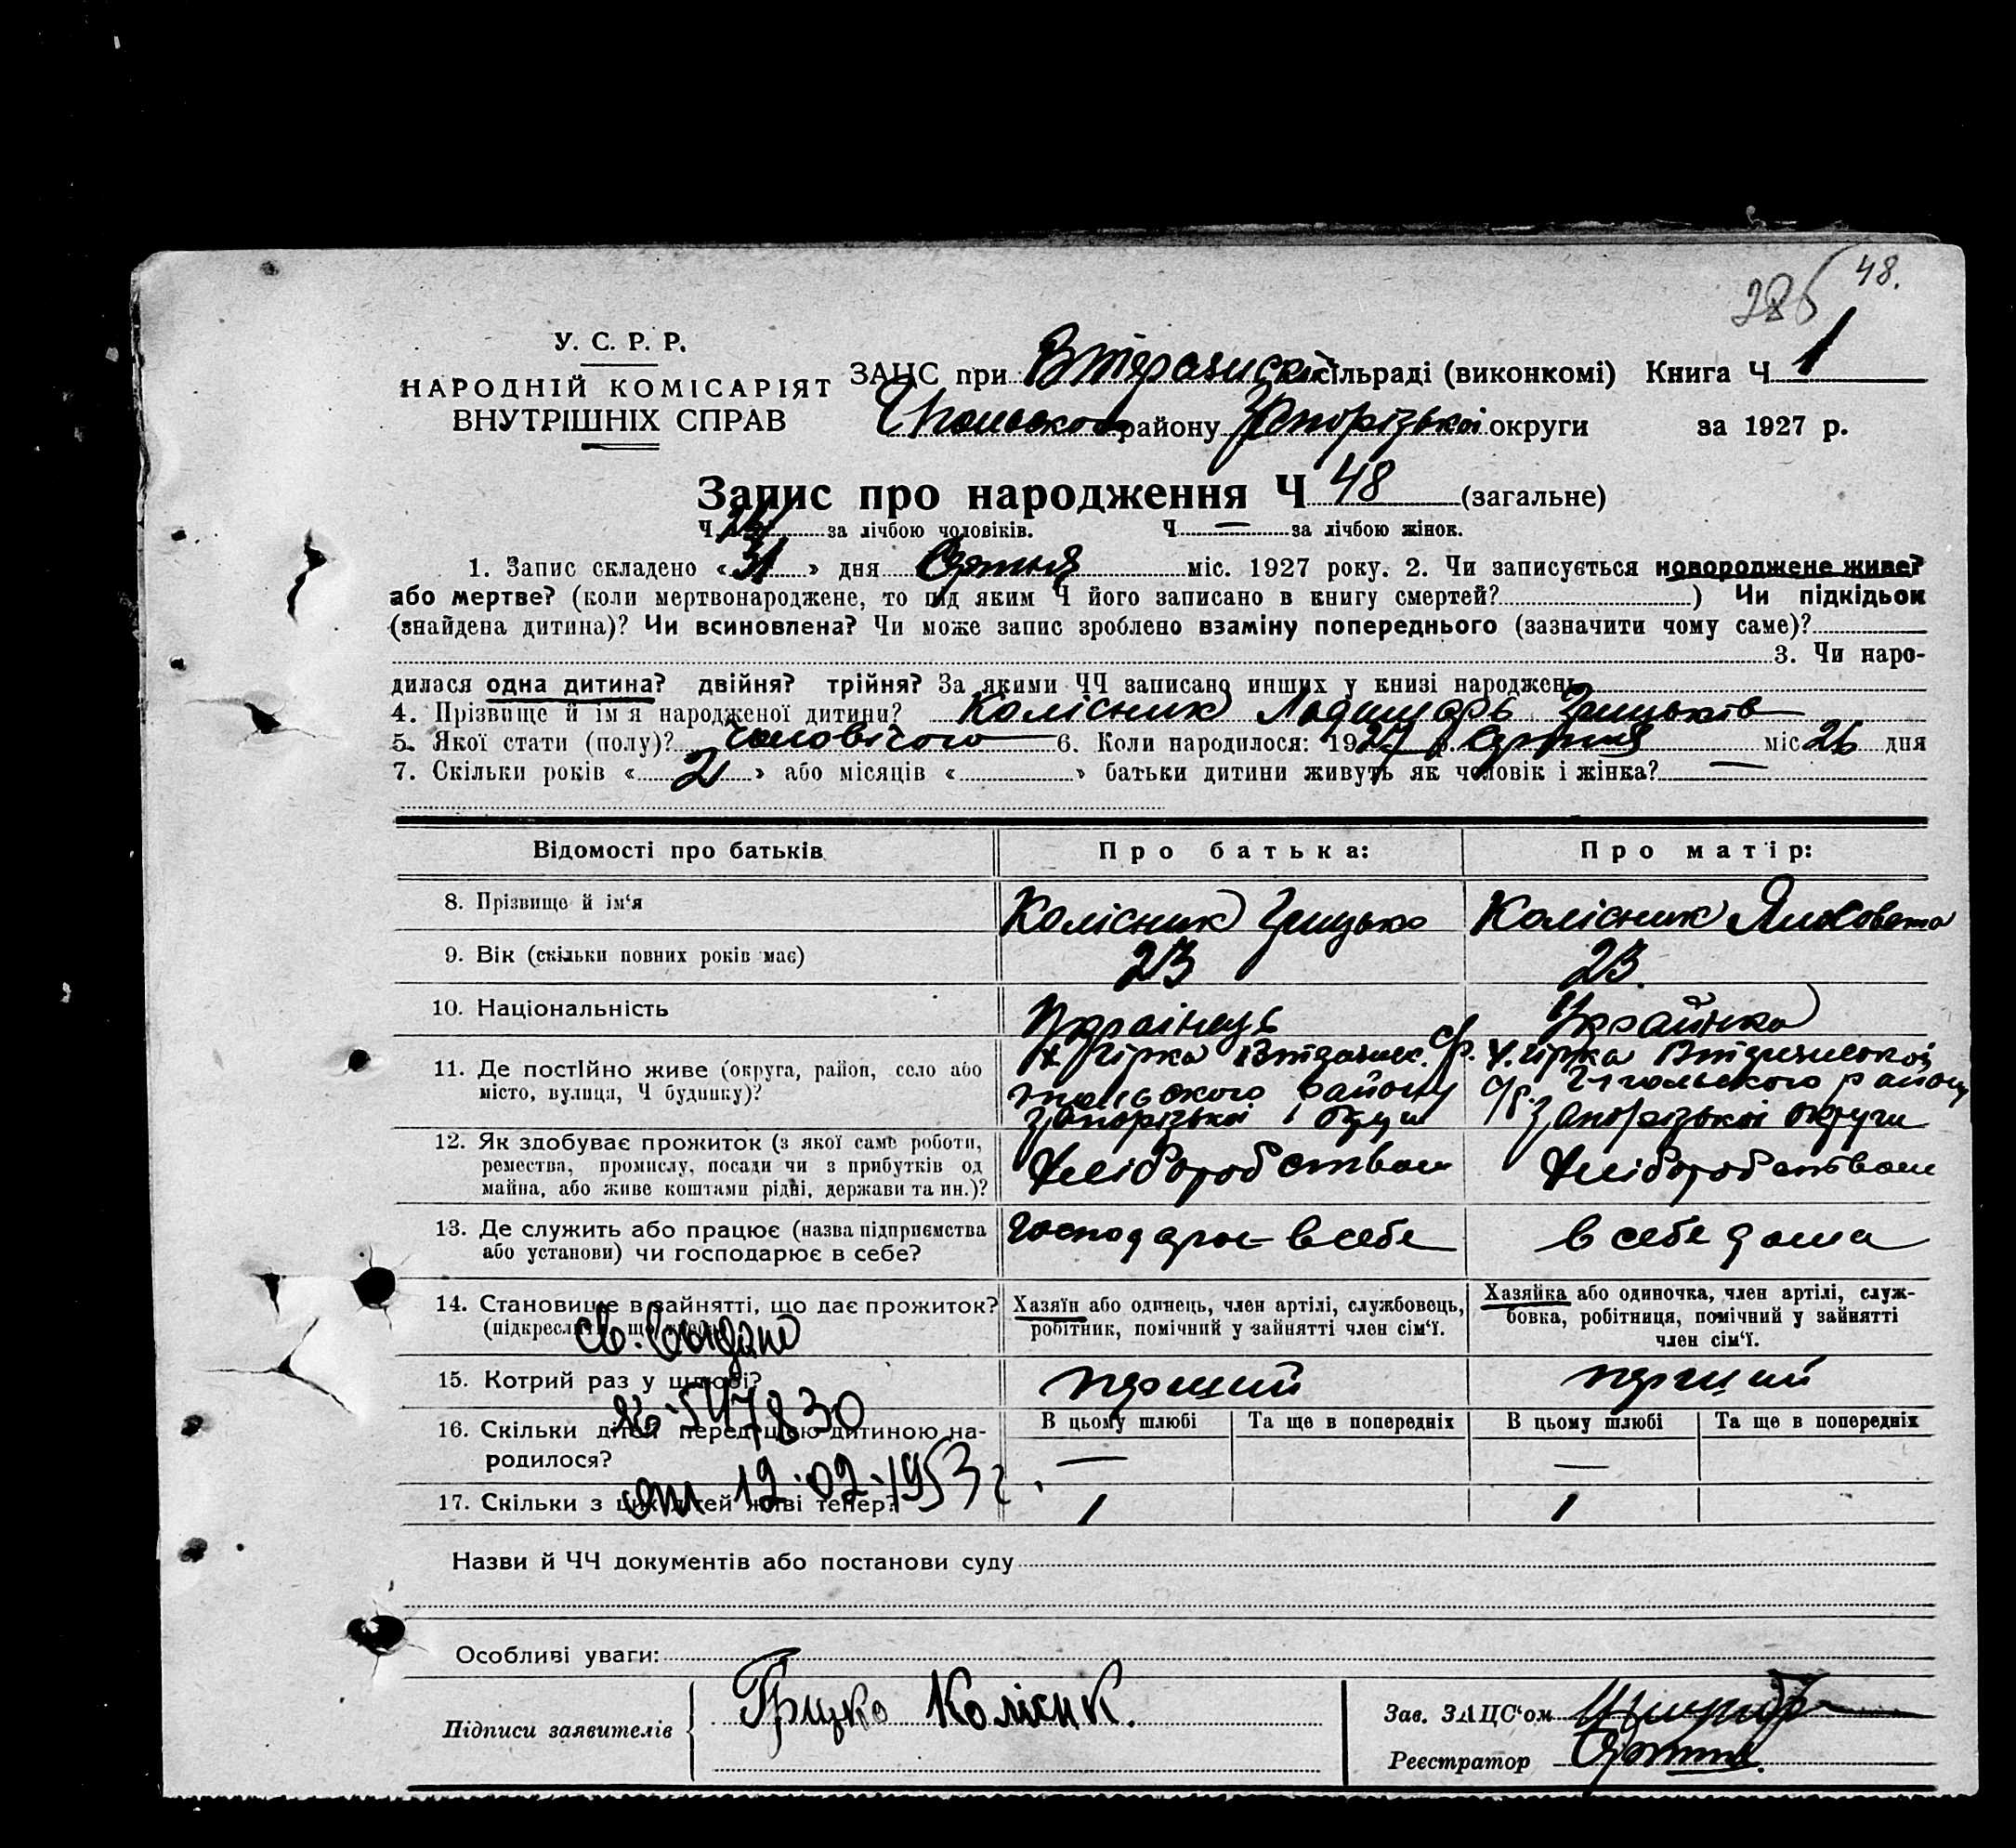 286 48.
У. С. Р. Р.
НАРОДНІЙ КОМІСАРІЯТ
ВНУТРІШНІХ СПРАВ
ЗАЦС при сільраді (виконкомі) Книга Ч 1
району Запорізької округи за 1927 р.
Запис про народження Ч 48 (загальне)
Ч за лічбою чоловіків. Ч — за лічбою жінок.
1. Запис складено «31» дня Серпня міс. 1927 року. 2. Чи записується новороджене живе?
або мертве? (коли мертвонароджене, то під яким Ч його записано в книгу смертей?) Чи підкідьок
(знайдена дитина)? Чи всиновлена? Чи може запис зроблено взаміну попереднього (зазначити чому саме)?
3. Чи наро-
дилася одна дитина? двійня? трійня? За якими ЧЧ записано инших у книзі народжень
4. Прізвище й ім'я народженої дитини? Колісник Грицьків
5. Якої стати (полу)? Чоловічого 6. Коли народилося: 1927 р. Серпня міс 26 дня
7. Скільки років «2» або місяців « » батьки дитини живуть як чоловік і жінка? —
Відомості про батьків Про батька: Про матір:
8. Прізвище й ім'я Колісник Грицько Колісник
9. Вік (скільки повних років має) 23 23.
10. Національність Українець Українка
11. Де постійно живе (округа, район, село або
місто, вулиця, Ч будинку)?
х. Гірка с/р. х. Гірка
району с/р. району
Запорізької Округи Запорізької округи
12. Як здобуває прожиток (з якої саме роботи,
ремества, промислу, посади чи з прибутків од
майна, або живе коштами рідні, держави та ин.)?
Хліборобством Хліборобством
13. Де служить або працює (назва підприємства
або установи) чи господарює в себе?
Господарює в себе в себе дома
14. Становище в зайнятті, що дає прожиток?
(підкреслити, що треба)
Хазяїн або одинець, член артілі, службовець,
робітник, помічний у зайнятті член сім'ї.
Хазяйка або одиночка, член артілі, служ-
бовка, робітниця, помічний у зайнятті
член сім'ї.
Св. выдано
15. Котрий раз у шлюбі? перший перший
№ 547830
16. Скільки дітей перед цією дитиною на-
родилося?
В цьому шлюбі Та ще в попередніх В цьому шлюбі Та ще в попередніх
— —
от 12.02.1953 г.
17. Скільки з цих дітей живі тепер? 1 1
Назви й ЧЧ документів або постанови суду
Особливі уваги:
Підписи заявителів Грицко Колісник.
Зав. ЗАЦС'ом
Реєстратор